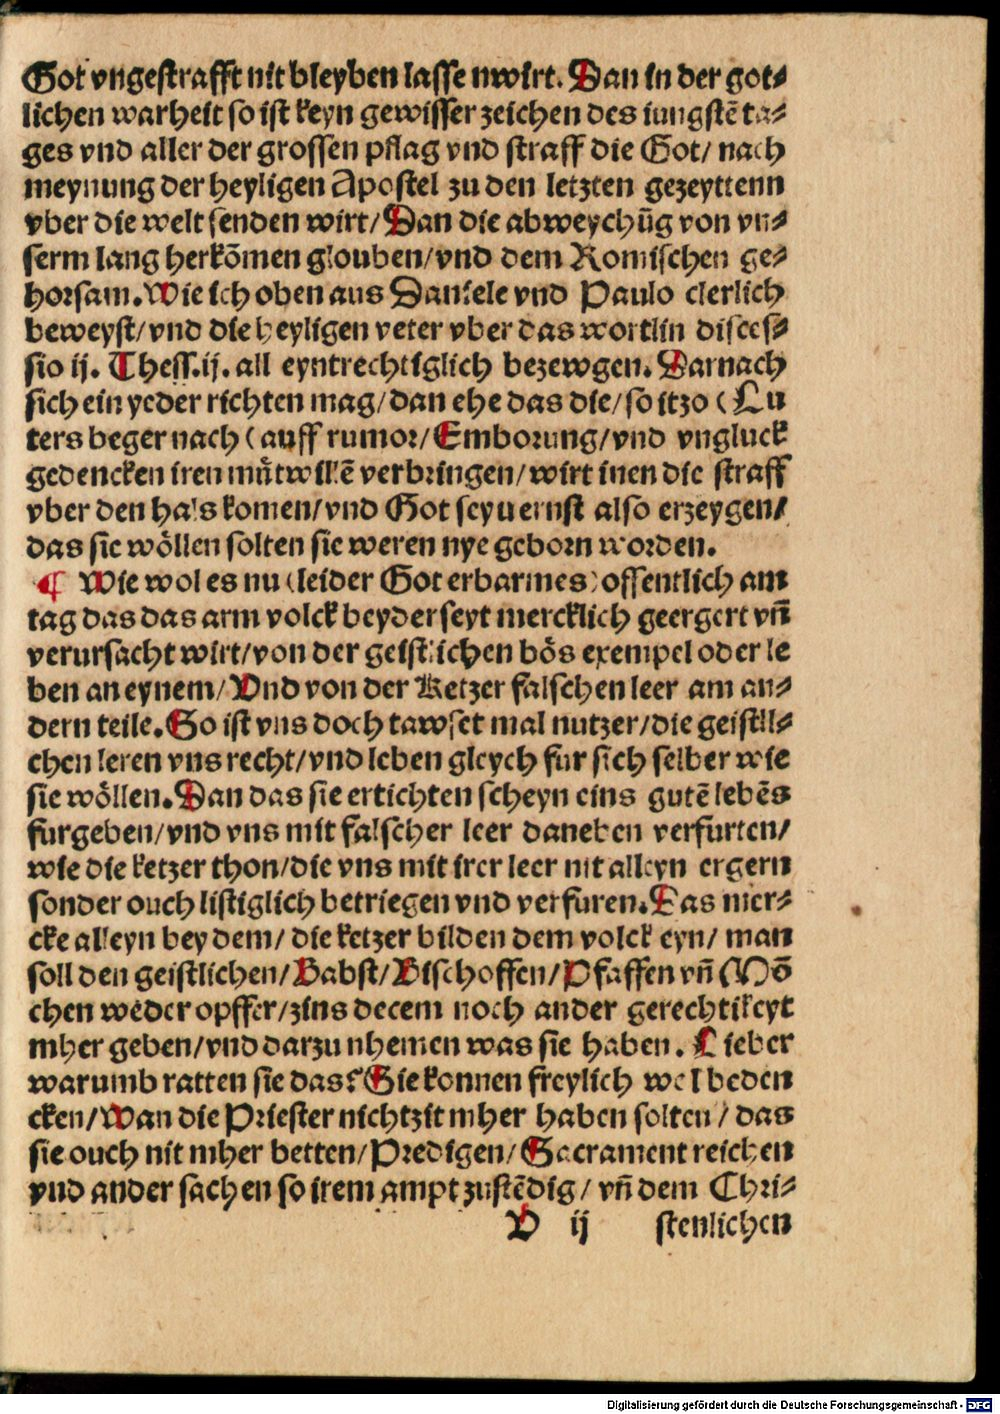 Got vngestrafft nit bleyben lasse nwirt. Dan in der got⸗
lichen warheit so ist keyn gewisser zeichen des iungstē ta⸗
ges vnd aller der grossen pflag vnd straff die Got/ nach
meynung der heyligen Apostel zu den letzten gezeyttenn
vber die welt senden wirt/ Dan die abweychūg von vn⸗
serm lang herkōmen glouben/ vnd dem Romischen ge⸗
horsam. Wie ich oben aus Daniele vnd Paulo clerlich
beweyst/ vnd die heyligen veter vber das wortlin disces⸗
sio ij. Thess.ij. all eyntrechtiglich bezewgen. Darnach
sich ein yeder richten mag/ dan ehe das die/ so itzo (Lu
ters beger nach( auff rumor/ Emborung/ vnd vngluck
gedencken iren mûtwillē verbringen/ wirt inen die straff
vber den hals komen/ vnd Got seyn ernst also erzeygen/
das sie wöllen solten sie weren nye geborn worden.
¶ Wie wol es nu (leider Got erbarmes) offentlich am
tag das das arm volck beyderseyt mercklich geergert vñ
verursacht wirt/ von der geistlichen bös exempel oder le
ben an eynem/ Vnd von der Ketzer falschen leer am an⸗
dern teile. So ist vns doch tawset mal nutzer/ die geistli⸗
chen leren vns recht/ vnd leben gleych fur sich selber wie
sie wöllen. Dan das sie ertichten scheyn eins gutē lebēs
furgeben/ vnd vns mit falscher leer daneben verfurten/
wie die ketzer thon/ die vns mit irer leer nit alleyn ergern
sonder ouch listiglich betriegen vnd verfuren. Das mer⸗
cke alleyn bey dem/ die ketzer bilden dem volck eyn/ man
soll den geistlichen/ Babst/ Bischoffen/ Pfaffen vñ Mō
chen weder opffer/ zins decem noch ander gerechtikeyt
mher geben/ vnd darzu nhemen was sie haben. Lieber
warumb ratten sie das? Sie konnen freylich wol beden
cken/ Wan die Priester nichtzit mher haben solten/ das
sie ouch nit mher betten/ Predigen/ Sacrament reichen
vnd ander sachen so irem ampt zustēdig/ vñ dem Chri⸗
D ij stenlichen
Digitalisierung gefördert durch die Deutsche Forschungsgemeinschaft - DFG